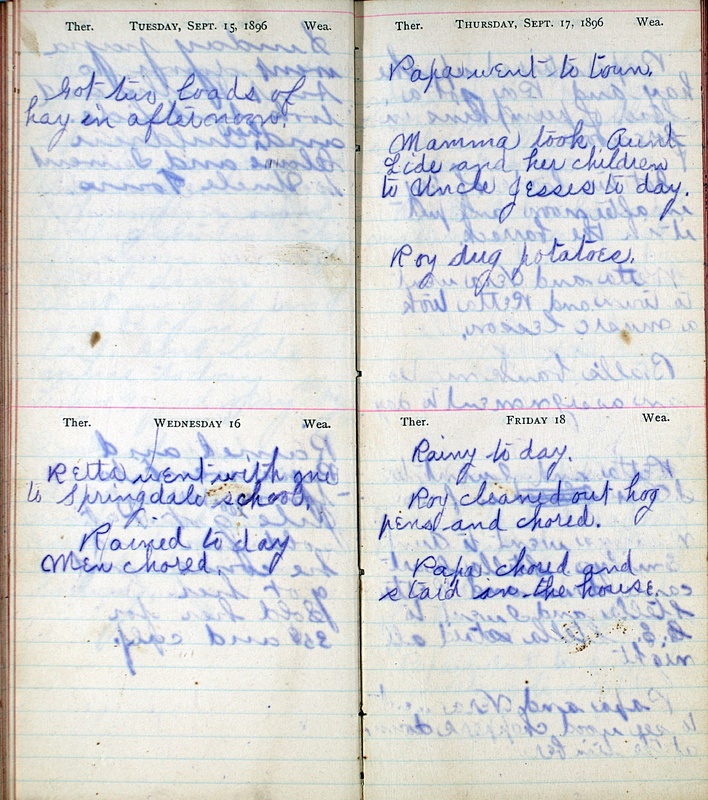 Ther. TUESDAY, SEPT. 15, 1896 Wea.
Got two loads of
hay in afternoon.
Ther. WEDNESDAY 16 Wea.
Retta went with me
to Springdale school.
Rained to day
Men chored.
Ther. THURSDAY, SEPT. 17, 1896 Wea.
Papa went to town.
Mamma took Aunt
Lide and her children
to Uncle Jesses to day.
Roy dug potatoes.
Ther. FRIDAY 18 Wea.
Rainy to day.
Roy cleaned out hog
pens and chored.
Papa chored and
staid in the house.